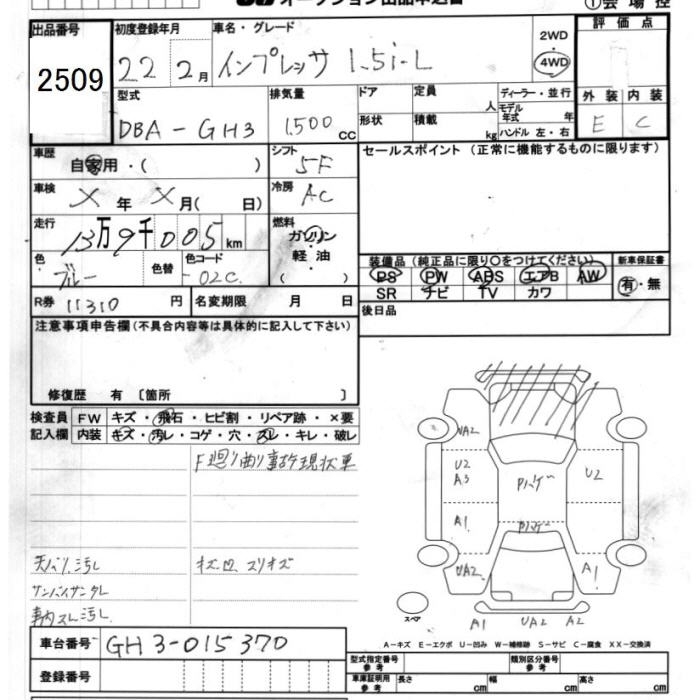 オークション出品申込書
①会場控
出品番号
2509
初度登録年月
22 2月
車名・グレード
インプレッサ 1.5i-L
2WD
4WD
評価点
外装 内装
E C
型式
DBA-GH3
排気量
1,500 cc
ドア
形状
定員
人
積載
kg
ディーラー・並行
モデル年式 年
ハンドル 左・右
車歴
自家用・( )
シフト
5F
セールスポイント (正常に機能するものに限ります)
車検
X 年 X 月( 日)
冷房
AC
走行
13万9千005 km
燃料
ガソリン
軽油
( )
色
ブルー
色替
色コード
02C
装備品 (純正品に限り○をつけてください)
PS PW ABS エアB AW
SR ナビ TV カワ
新車保証書
有・無
R券 11310 円
名変期限 月 日
後日品
注意事項申告欄(不具合内容等は具体的に記入して下さい)
修復歴 有 〔箇所 〕
検査員記入欄
FW キズ・飛石・ヒビ割・リペア跡・×要
内装 キズ・汚レ・コゲ・穴・スレ・キレ・破レ
F廻り曲り事故現状車
天バリ汚し
キズ凹スリキズ
サンバイザーシタレ
車内スレ汚し
UA2
U2
A3
A1
UA2
Pハゲ
Pハゲ
U2
A1
スペア
A1 UA2 A2
車台番号
GH3-015370
登録番号
A-キズ E-エクボ U-凹み W-補修跡 S-サビ C-腐食 XX-交換済
型式指定番号
参考
類別区分番号
参考
車庫証明用
参考
長さ cm
幅 cm
高さ cm